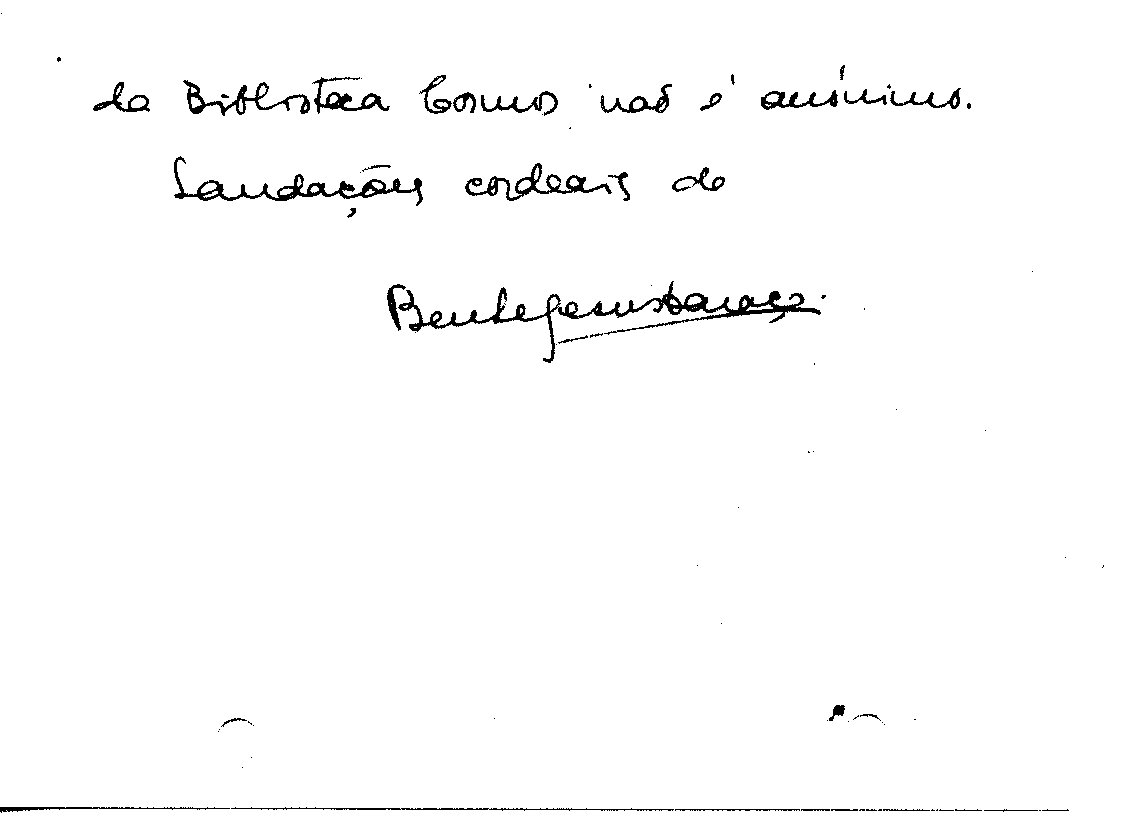 da Biblioteca Cosmos não é anónimo.
Saudações cordeais do
Bento Jesus Caraça.